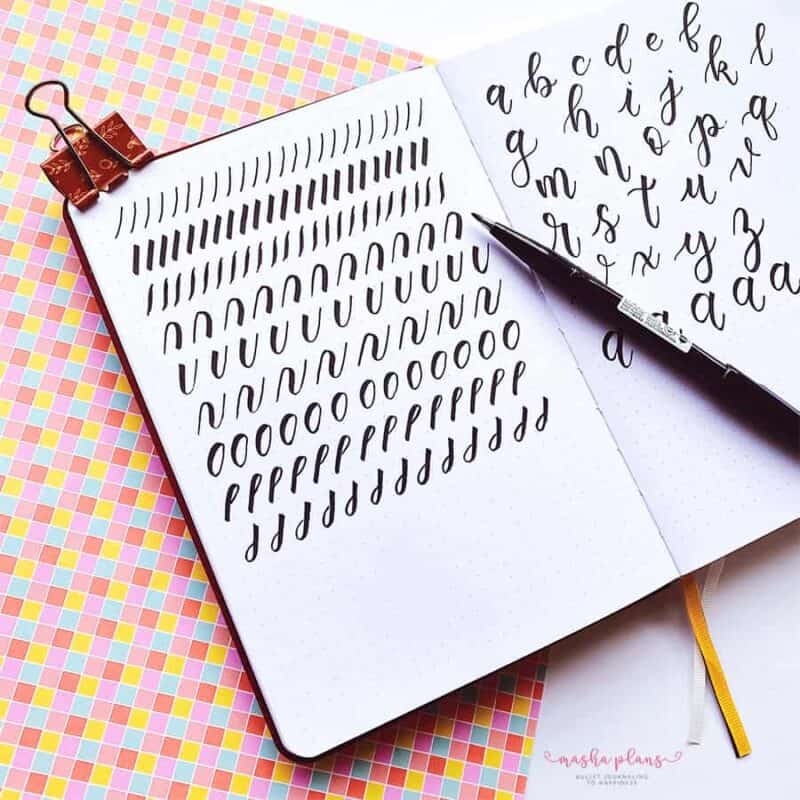 a b c d e f
g h i j k l
m n o p q
r s t u v
x y z
a a a a a
masha plans
BULLET JOURNALING
TO HAPPINESS